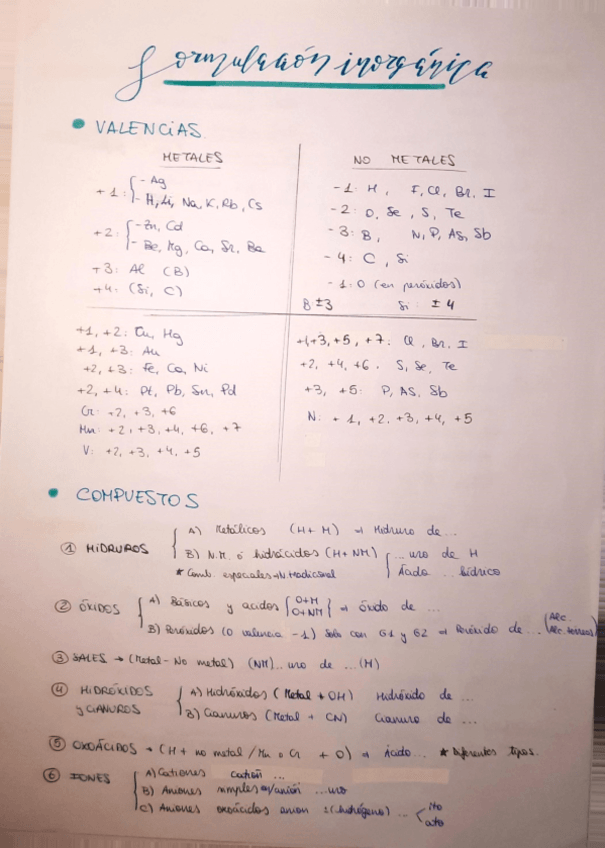 formulación inorgánica
• VALENCIAS
METALES
+1: { - Ag
- H, Li, Na, K, Rb, Cs
+2: { - Zn, Cd
- Be, Mg, Ca, Sr, Ba
+3: Al (B)
+4: (Si, C)
NO METALES
-1: H, F, Cl, Br, I
-2: O, Se, S, Te
-3: B, N, P, AS, Sb
-4: C, Si
-1: O (en peróxidos)
B ±3 Si: ±4
+1, +2: Cu, Hg
+1, +3: Au
+2, +3: Fe, Co, Ni
+2, +4: Pt, Pb, Sn, Pd
Cr: +2, +3, +6
Mn: +2, +3, +4, +6, +7
V: +2, +3, +4, +5
+1+3, +5, +7: Cl, Br, I
+2, +4, +6. S, Se, Te
+3, +5: P, AS, Sb
N: +1, +2, +3, +4, +5
• COMPUESTOS
① HIDRUROS { A) Metálicos (H+M) → Hidruro de ...
B) N.M. ó hidrácidos (H+NM) { ... uro de H
Ácido ... hídrico
* Comb. especiales → N tradicional
② ÓXIDOS { A) Básicos y acidos { O+M
O+NM } → óxido de ...
B) Peróxidos (O valencia -1) Solo con G1 y G2 → Peróxido de ... (Alc.
Alc. térreos)
③ SALES → (Metal - No metal) (NM)... uro de ... (M)
④ HIDRÓXIDOS y CIANUROS { A) Hidróxidos (Metal + OH) Hidróxido de ...
B) Cianuros (Metal + CN) Cianuro de ...
⑤ OXOÁCIDOS → (H + no metal / Mn o Cr + O) → Ácido... * Diferentes tipos.
⑥ IONES { A) Cationes catión ...
B) Aniones simples anión ...uro
C) Aniones oxoácidos anion : (hidrógeno) ... < ito
ato